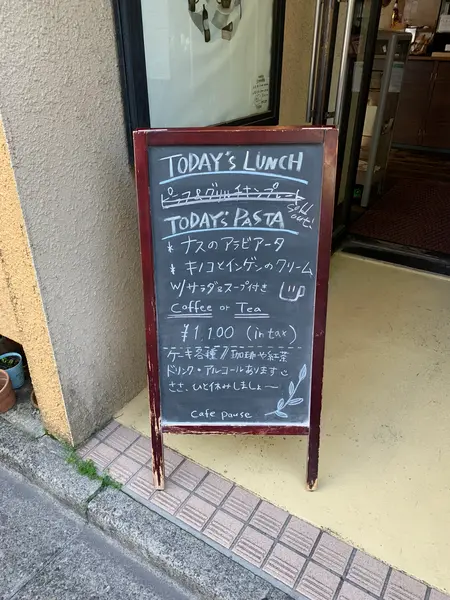 TODAY's LUNCH
ピラフ&グリルチキンプレート
Sold out!
TODAY's PASTA
* ナスのアラビアータ
* キノコとインゲンのクリーム
W/サラダ&スープ付き
Coffee or Tea
¥1.100 (in tax)
ケーキ各種 // 珈琲や紅茶
ドリンク・アルコールあります
ささ、ひと休みしましょ〜
cafe pause